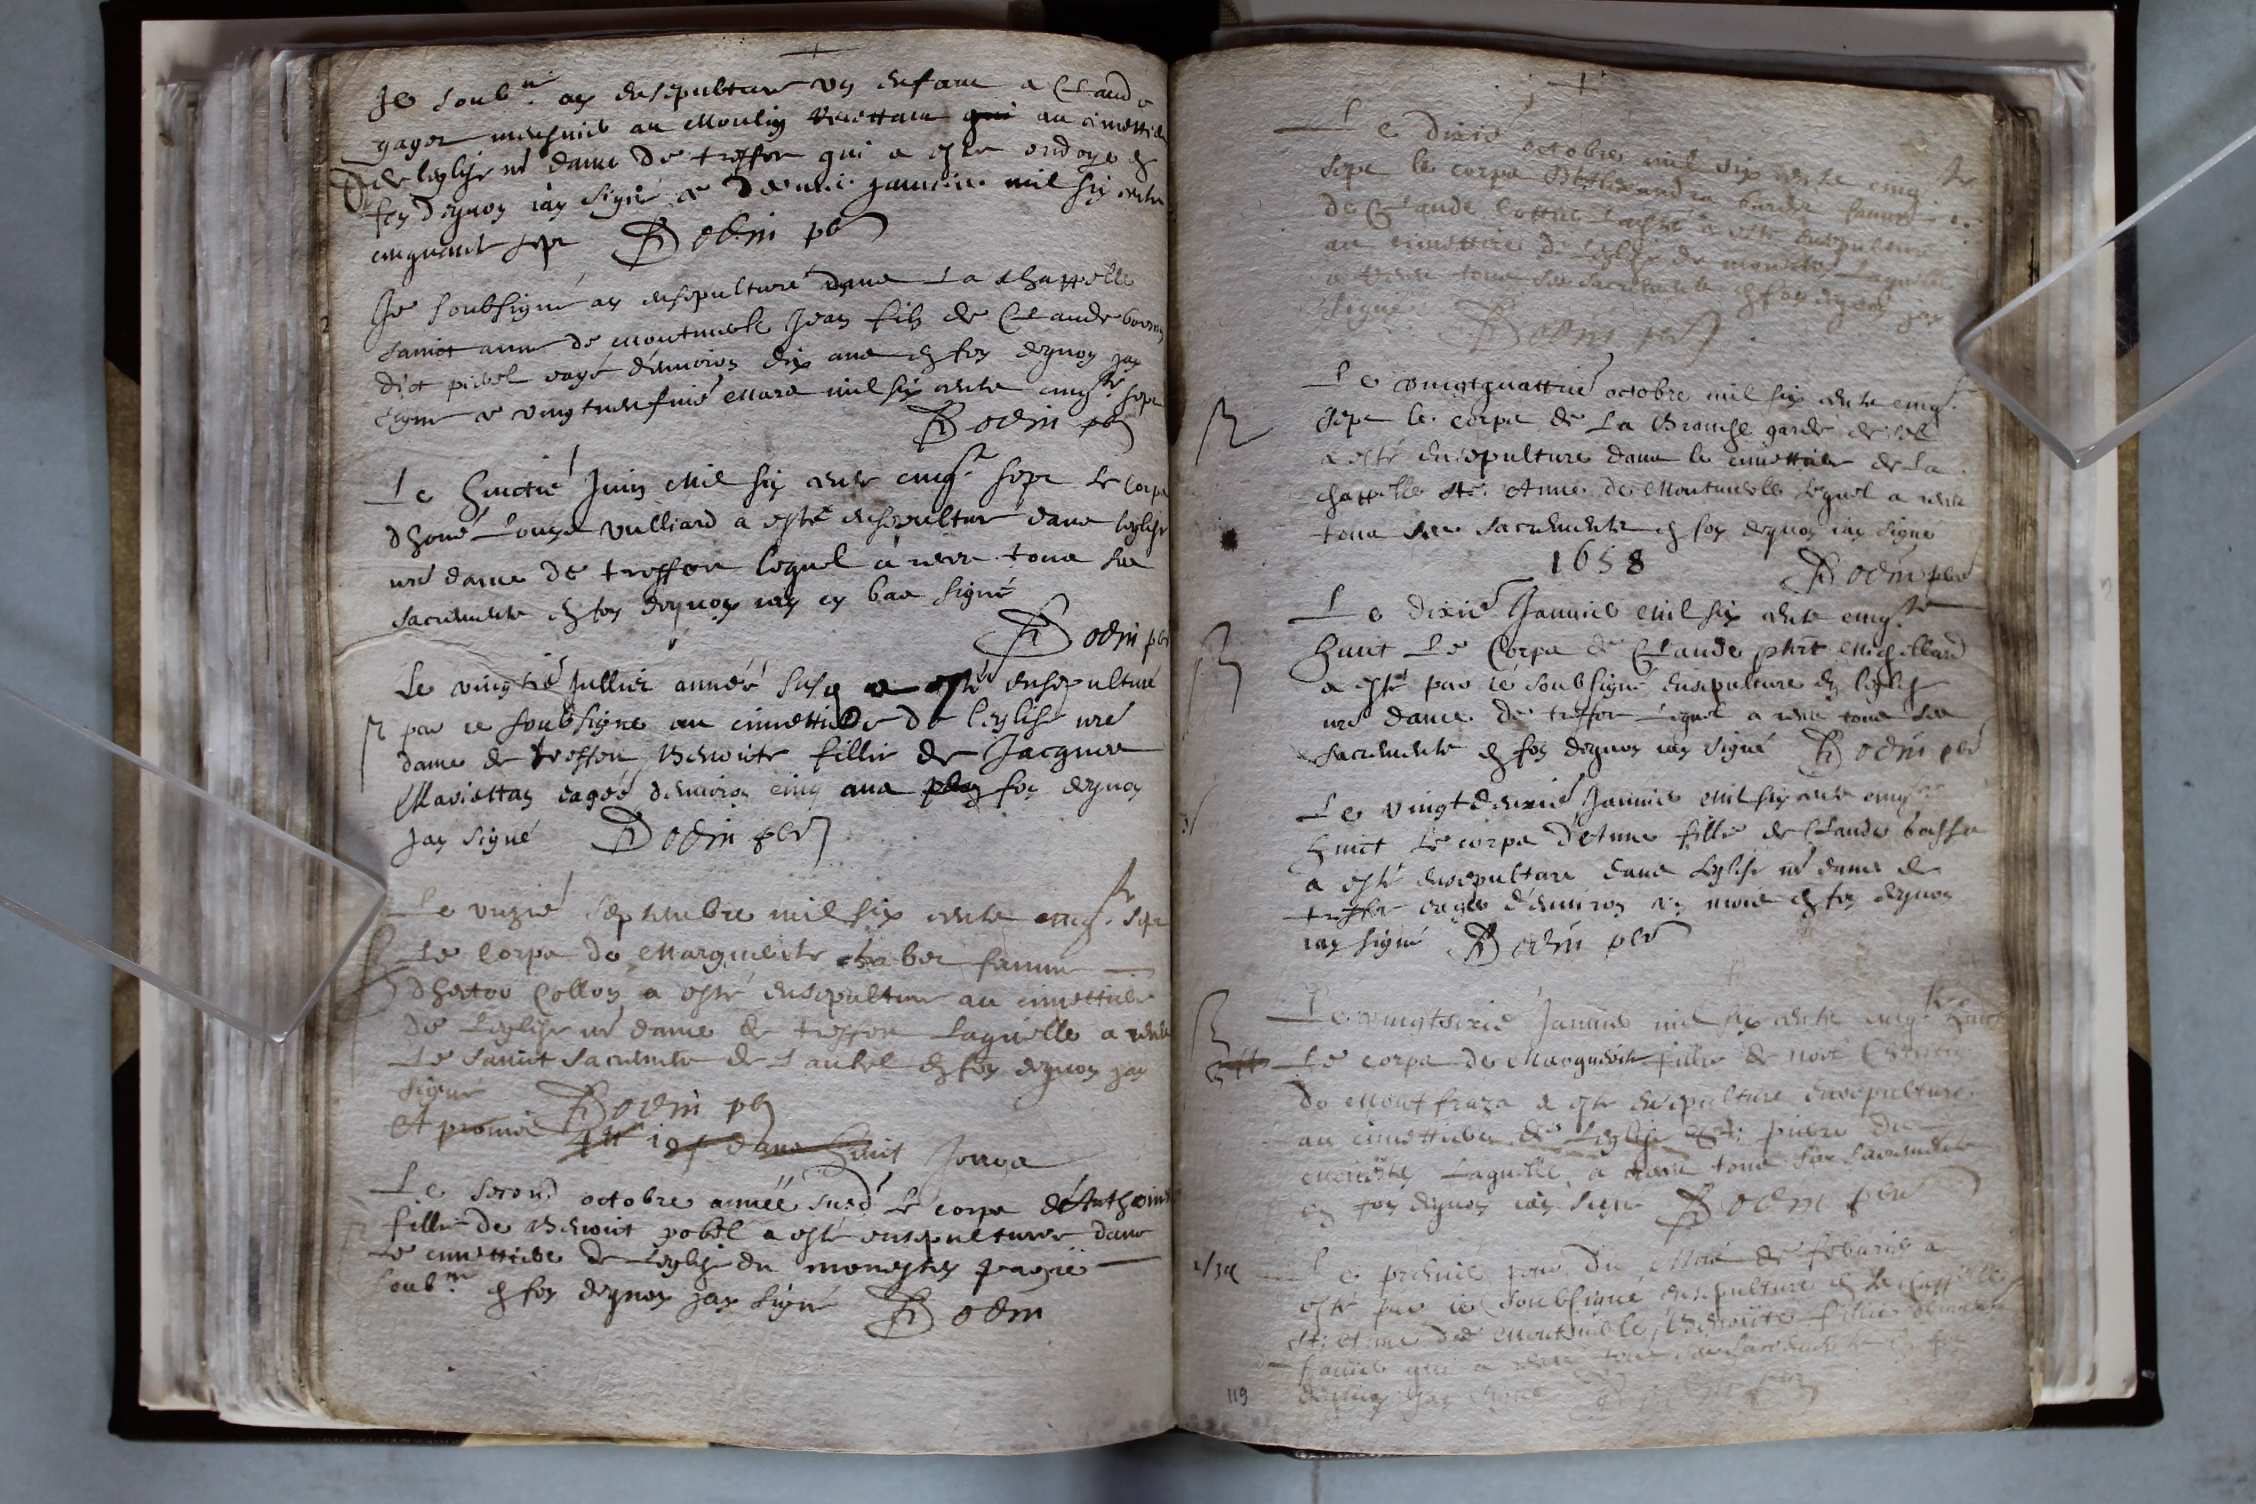 Je soub.né ay ensepulturé un enfant a Claude
gager meusnier au Moulin au cimettiere
de leglise nre dame de treffort qui a esté ondoyé en
foy dequoy iay signé ce Janvier mil six cents
cinquante sept Bodin pbr
Je soubsigné ay ensepulturé dans La chappelle
Sainct anne de montmerle Jean filz de Claude
dict pivel eagé denviron dix ans en foy dequoy jay
signé ce vingtneufvie Mars mil six cents cinqte sept
Bodin pbr
Le huictie Juin Mil six cents cinqte sept Le Corps
dhoné Louys Vulliard a esté ensepulturé dans leglise
nre dame de treffort lequel a receu tous ses
sacrements en foy dequoy iay cy bas signé
Bodin pbr
Le vingtie Jullier année susd a esté ensepulturé
par ie soubsigné au cimettiere de leglise nre
dame de treffort Benoite fillie de Jacques
Mariettan eagée denviron cinq ans foy dequoy
Jay signé Bodin pbr
Le unzie septembre mil six cents cinqte sept
Le Corps de Marguerite chaber femme
dhector Collon a esté ensepulturé au cimettiere
de Leglise nre dame de treffort Laquelle a receu
Le sainct sacrements de Lautel en foy dequoy jay
signé Bodin pbr
Et promis dans huict Jours
Le second octobre année susd Le corps dAnthoine
fillie de Benoict pobel a esté ensepulturée dans
Le cimettiere de Leglise du monestey par ie
soub.né en foy dequoy jay signé Bodin
Le dixie octobre mil six cents cinqte
sept le corps femme
de Claude a esté ensepulturé
au cimettiere de Leglise de Laquelle
a receu tous ses sacrements en foy dequoy jay
signé Bodin pbr
Le vingtquattrie octobre mil six cents cinqte
sept le corps de La Branche garde de
a esté ensepulturé dans le cimettiere de La
chappelle Ste Anne de Montmerle lequel a receu
tous ses sacrements en foy dequoy iay signé
1658 Bodin pbr
Le dixie Janvier Mil six cents cinqte
huict Le Corps de Claude phrt Michellard
a esté par ie soubsigné ensepulturé en leglise
nre dame de treffort Lequel a receu tous ses
sacrements en foy dequoy iay signé Bodin pbr
Le vingtdeuxie Janvier Mil six cents cinqte
huict Le corps dAnne fillie de Claude bosse
a esté ensepulturé dans Leglise nre dame de
treffort eagée denviron un mois en foy dequoy
iay signé Bodin pbr
Le vingtsixie Janvier mil six cents cinqte huict
Le corps de Marguerite fillie de noel
de Montfraze a esté ensepulture ensepulturé
au cimettiere de Leglise St piere du
monestey Laquelle a receu tous ses sacrements
en foy dequoy iay signé Bodin pbr
Le premier jour du Mois de febvrier a
esté par ie soubsigné ensepulture en La chappelle
Ste Anne de Montmerle Benoite fillie
qui a receu tous ses sacrements en foy
dequoy jay signé
119